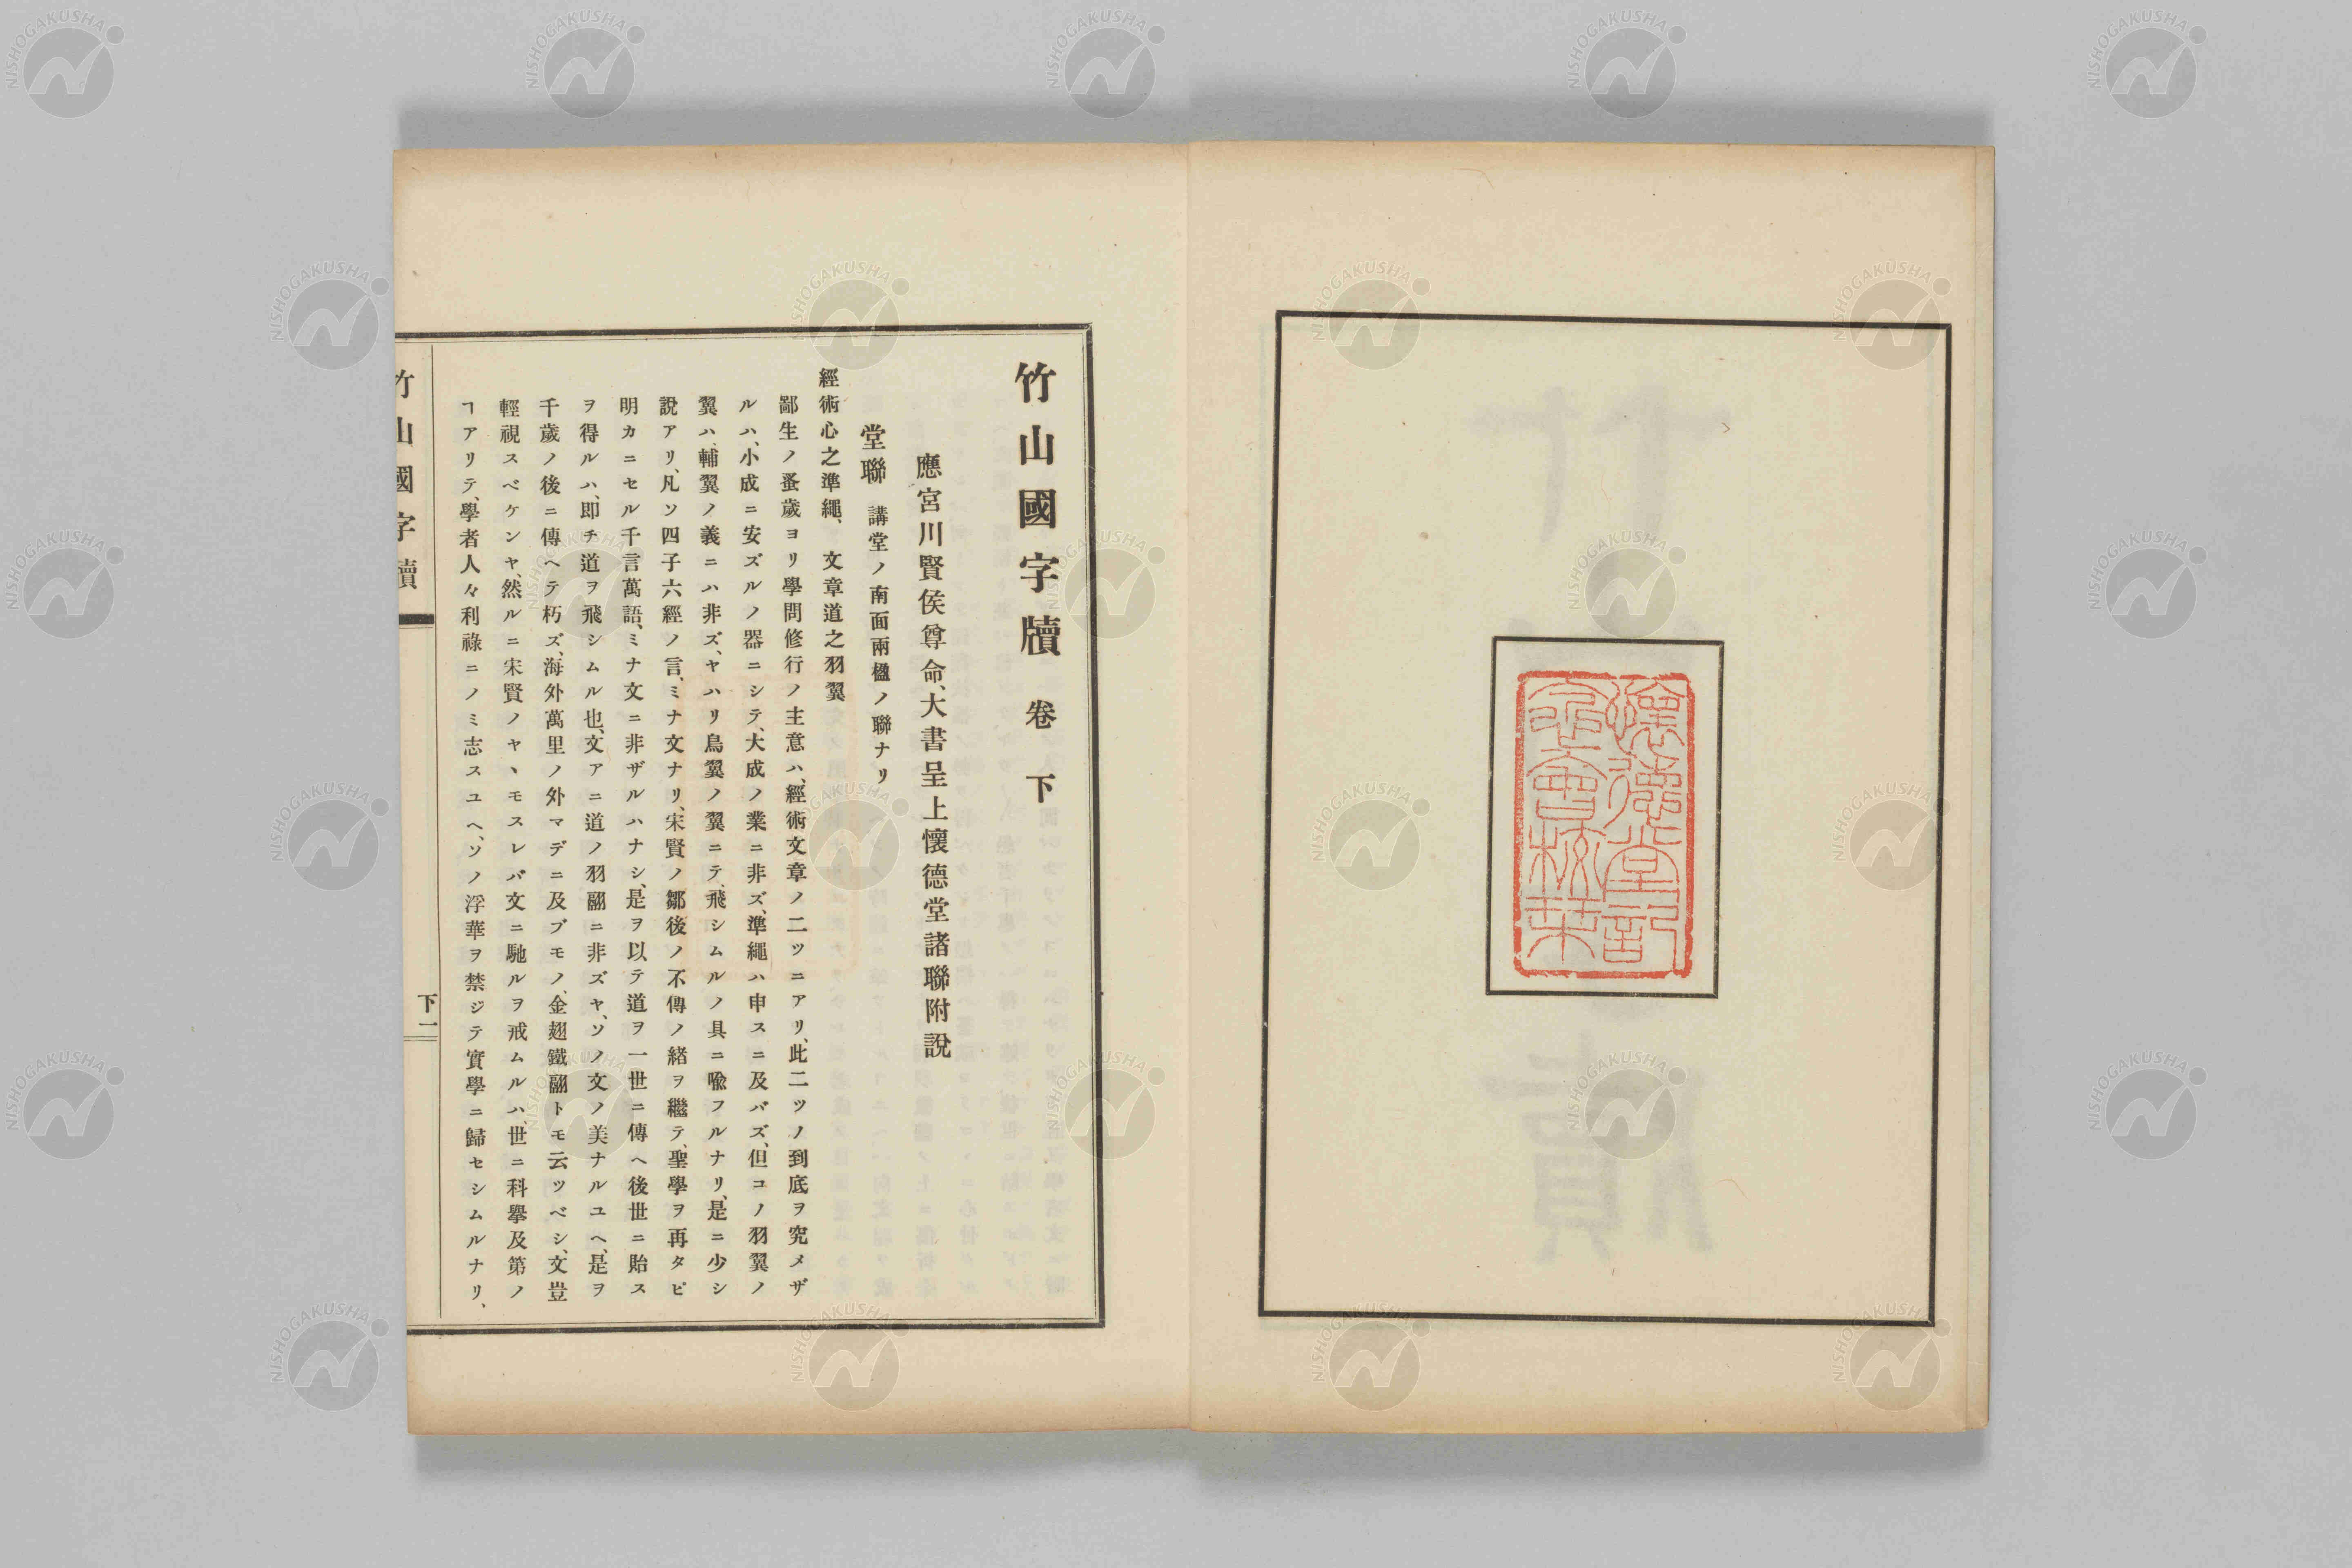 懷德堂記
念會校栞
竹山國字牘 卷下
應宮川賢侯尊命、大書呈上懷德堂諸聯附說
堂聯 講堂ノ南面兩楹ノ聯ナリ
經術心之準繩、文章道之羽翼
鄙生ノ蚤歲ヨリ學問修行ノ主意ハ、經術文章ノ二ツニアリ、此二ツノ到底ヲ究メザ
ルハ、小成ニ安ズルノ器ニシテ、大成ノ業ニ非ズ、準繩ハ申スニ及バズ、但コノ羽翼ノ
翼ハ、輔翼ノ義ニハ非ズ、ヤハリ鳥翼ノ翼ニテ、飛シムルノ具ニ喩フルナリ、是ニ少シ
說アリ、凡ソ四子六經ノ言、ミナ文ナリ、宋賢ノ鄒後ノ不傳ノ緒ヲ繼テ、聖學ヲ再タビ
明カニセル千言萬語、ミナ文ニ非ザルハナシ、是ヲ以テ道ヲ一世ニ傳ヘ後世ニ貽ス
ヲ得ルハ、即チ道ヲ飛シムル也、文アニ道ノ羽翮ニ非ズヤ、ソノ文ノ美ナルユヘ、是ヲ
千歲ノ後ニ傳ヘテ朽ズ、海外萬里ノ外マデニ及ブモノ、金翅鐵翮トモ云ツベシ、文豈
輕視スベケンヤ、然ルニ宋賢ノヤヽモスレバ文ニ馳ルヲ戒ムルハ、世ニ科擧及第ノ
ヿアリテ、學者人々利祿ニノミ志スユヘ、ソノ浮華ヲ禁ジテ實學ニ歸セシムルナリ、
竹山國字牘
下一
NISHOGAKUSHA